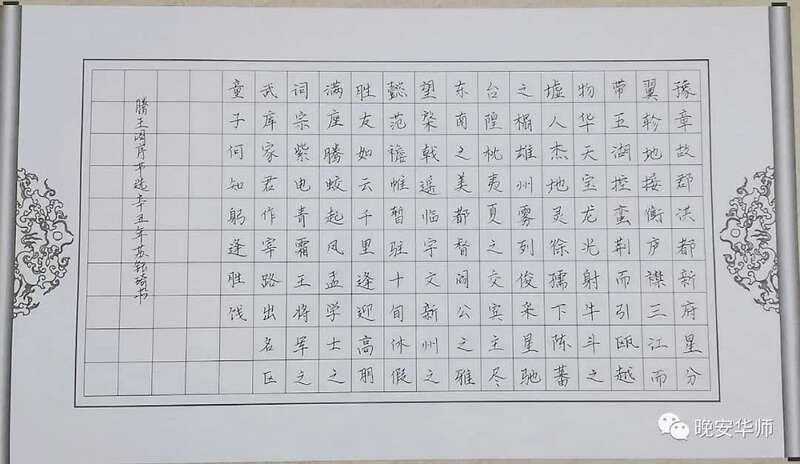 豫章故郡洪都新府星分
翼轸地接衡庐襟三江而
带五湖控蛮荆而引瓯越
物华天宝龙光射牛斗之
墟人杰地灵徐孺下陈蕃
之榻雄州雾列俊采星驰
台隍枕夷夏之交宾主尽
东南之美都督阎公之雅
望棨戟遥临宇文新州之
懿范襜帷暂驻十旬休假
胜友如云千里逢迎高朋
满座腾蛟起凤孟学士之
词宗紫电青霜王将军之
武库家君作宰路出名区
童子何知躬逢胜饯
滕王阁序节选辛丑年苏钰琦书
晚安华师